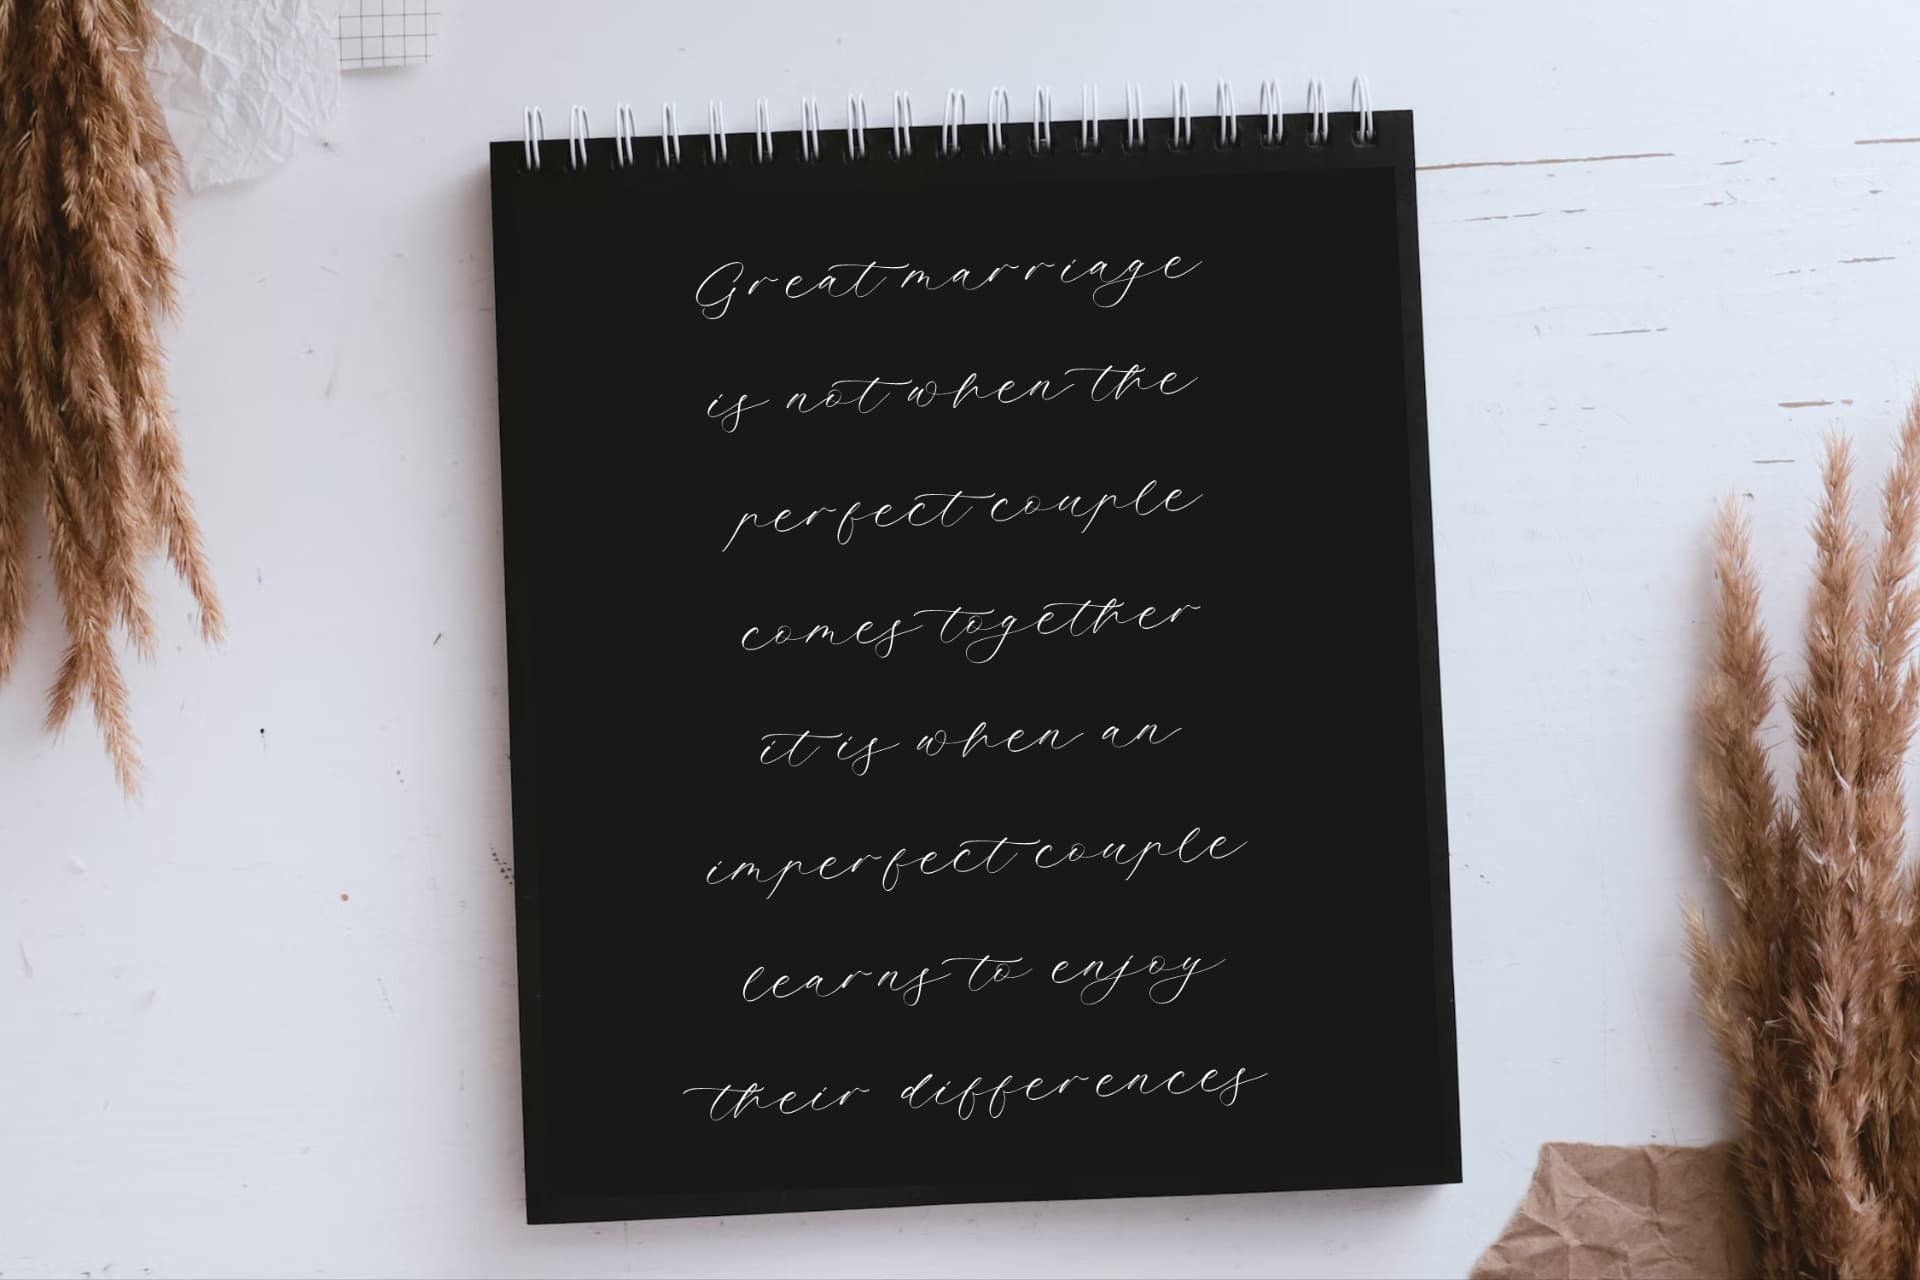 Great marriage
is not when the
perfect couple
comes together
it is when an
imperfect couple
learns to enjoy
their differences